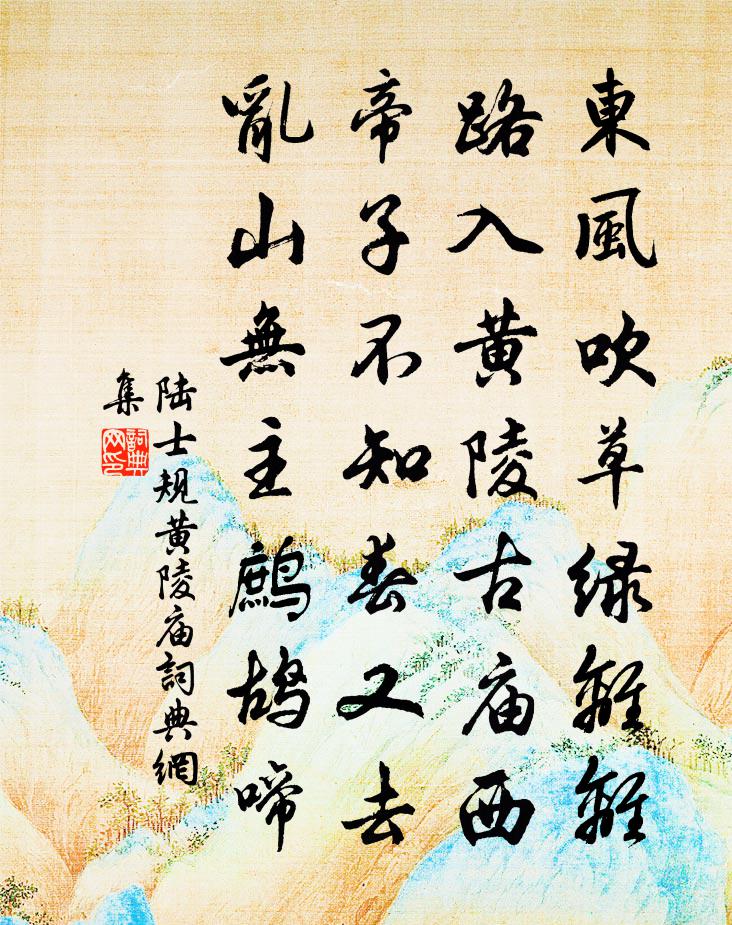 東風吹草绿離離
路入黄陵古庙西
帝子不知春又去
亂山無主鹧鸪啼
陆士规黄陵庙詞典網
集
詞典
网印